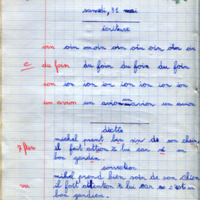 samedi, 31 mai
écriture
oin oin moin oin oin oin oin oin
c du foin du foin du foin du foin
ion ion ion ion ion ion ion
un avion un avion un avion
dictée
michel prend bien soin de son chien
il fait attion a lui car il est in
bon gardien.
correction
michel prend bien soin de son chien
il fait attention à lui car c'est un
bon gardien.